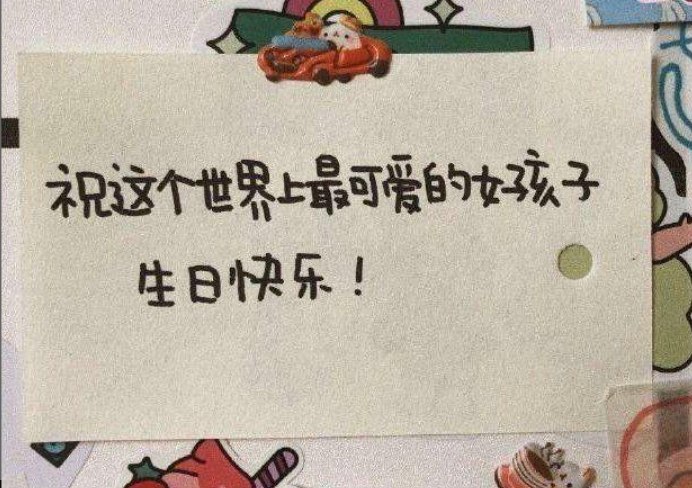 祝这个世界上最可爱的女孩子
生日快乐！